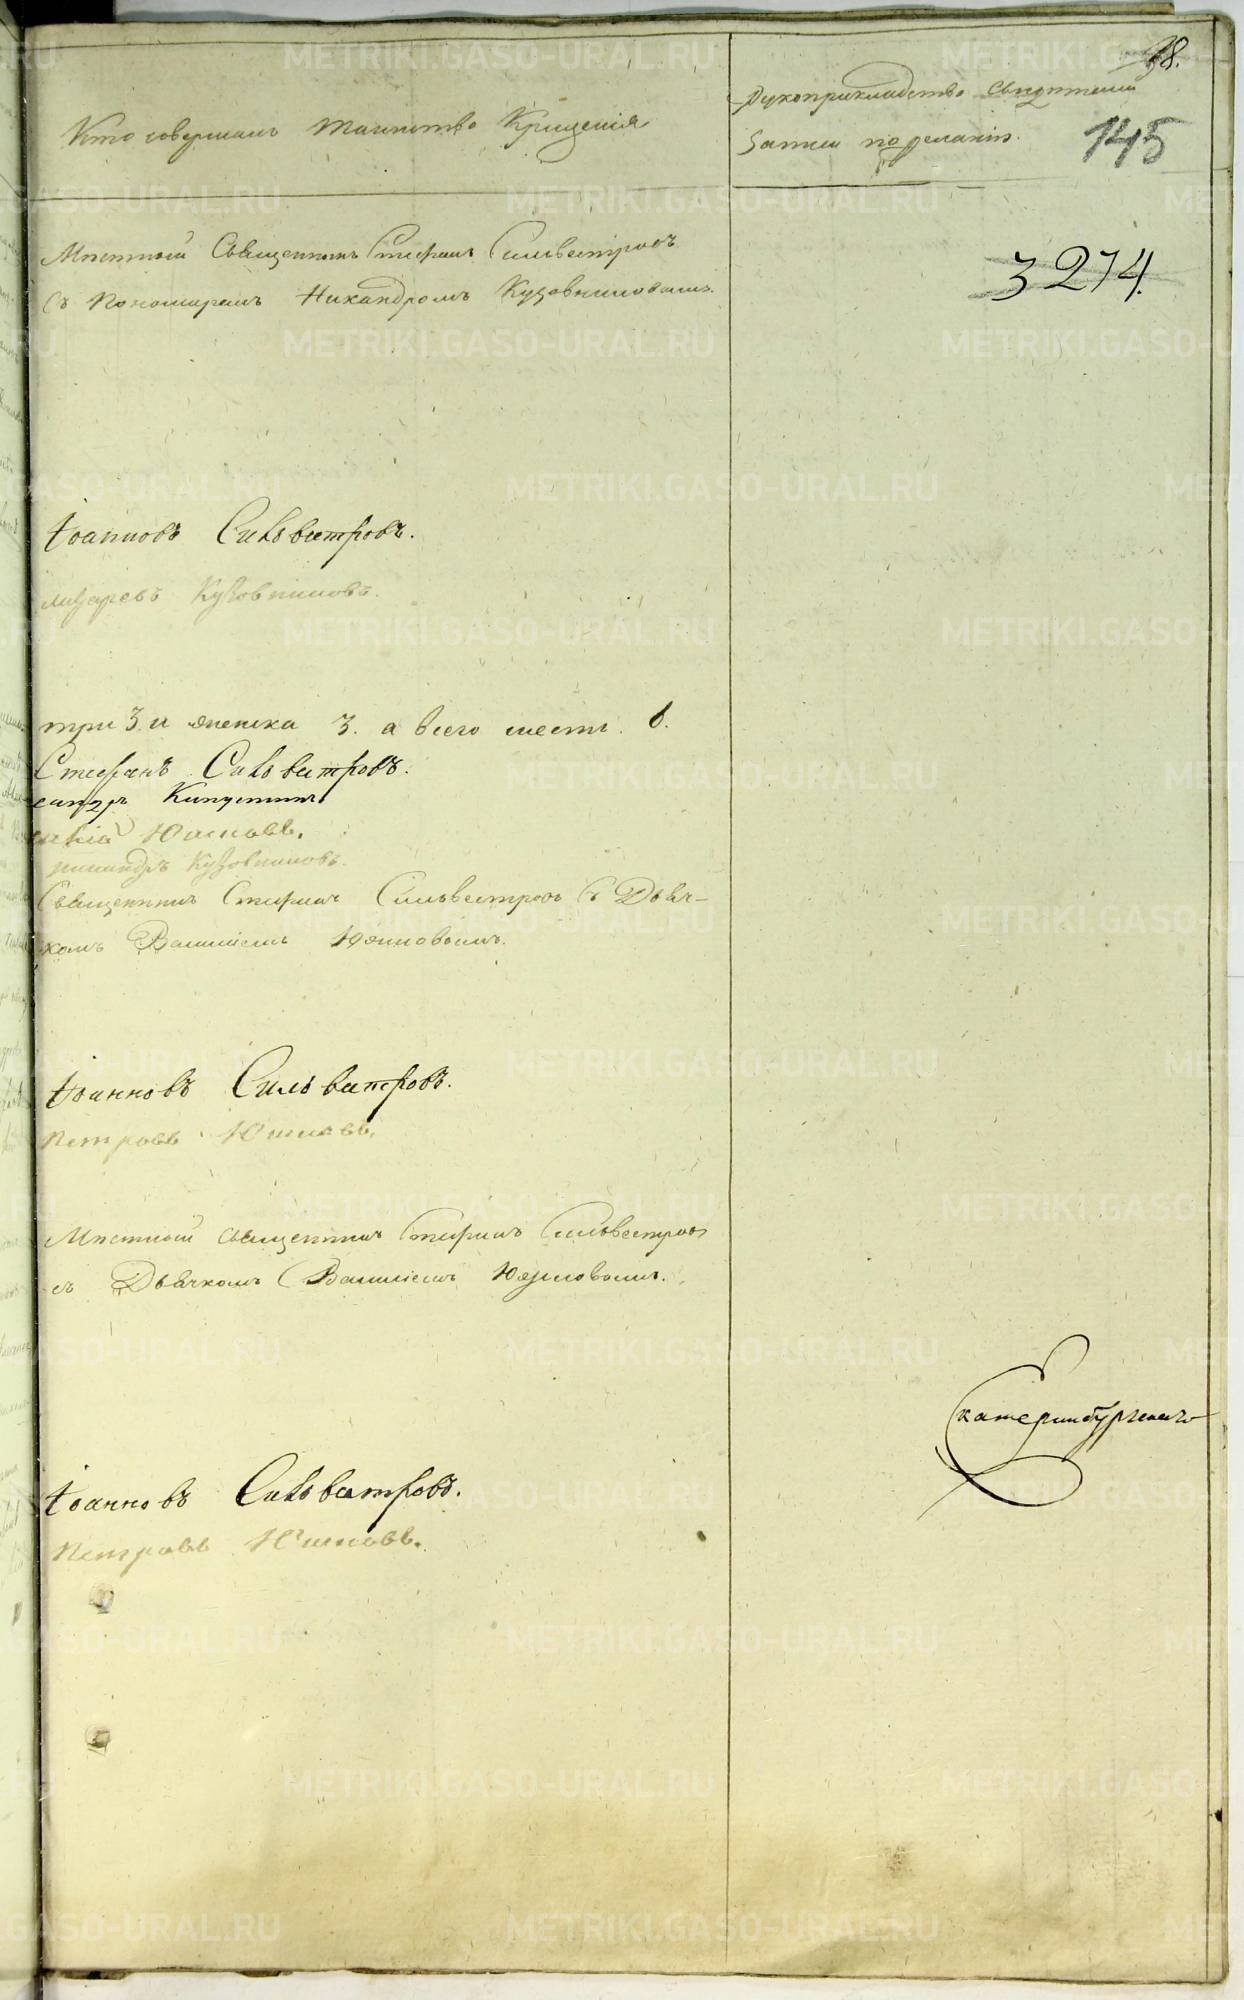 98.
Кто совершалъ таинство Крещенія
Рукоприкладство свидѣтелей
записи по желанію.
145
Мѣстный Священникъ Стефанъ Сильвестровъ
съ Пономаремъ Никандромъ Кузовниковымъ.
3274.
Іоанновъ Сильвестровъ.
Кузовниковъ.
три 3. и женска 3. а всего шесть. 6.
Стефанъ Сильвестровъ.
Юшковъ.
Кузовниковъ.
Священникъ Стефанъ Сильвестровъ съ Дьяч-
комъ Юшковымъ.
Іоанновъ Сильвестровъ.
Петровъ Юшковъ.
Мѣстный священникъ Стефанъ Сильвестровъ
съ Дьячкомъ Юшковымъ.
Екатеринбургскаго
Іоанновъ Сильвестровъ.
Петровъ Юшковъ.
METRIKI.GASO-URAL.RU